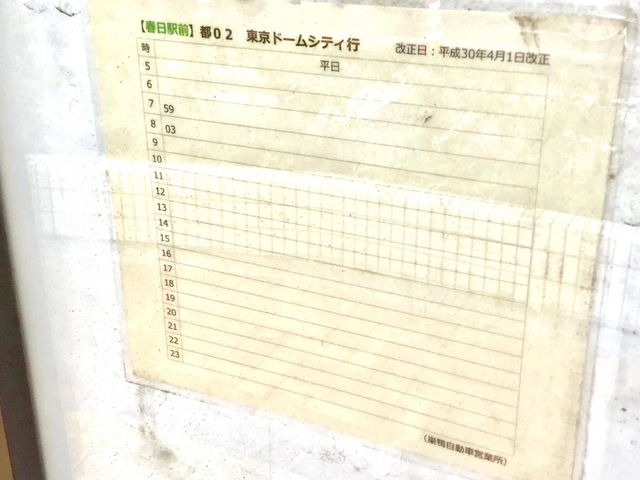 【春日駅前】都02 東京ドームシティ行 改正日：平成30年4月1日改正
時 平日
5
6
7 59
8 03
9
10
11
12
13
14
15
16
17
18
19
20
21
22
23
（巣鴨自動車営業所）